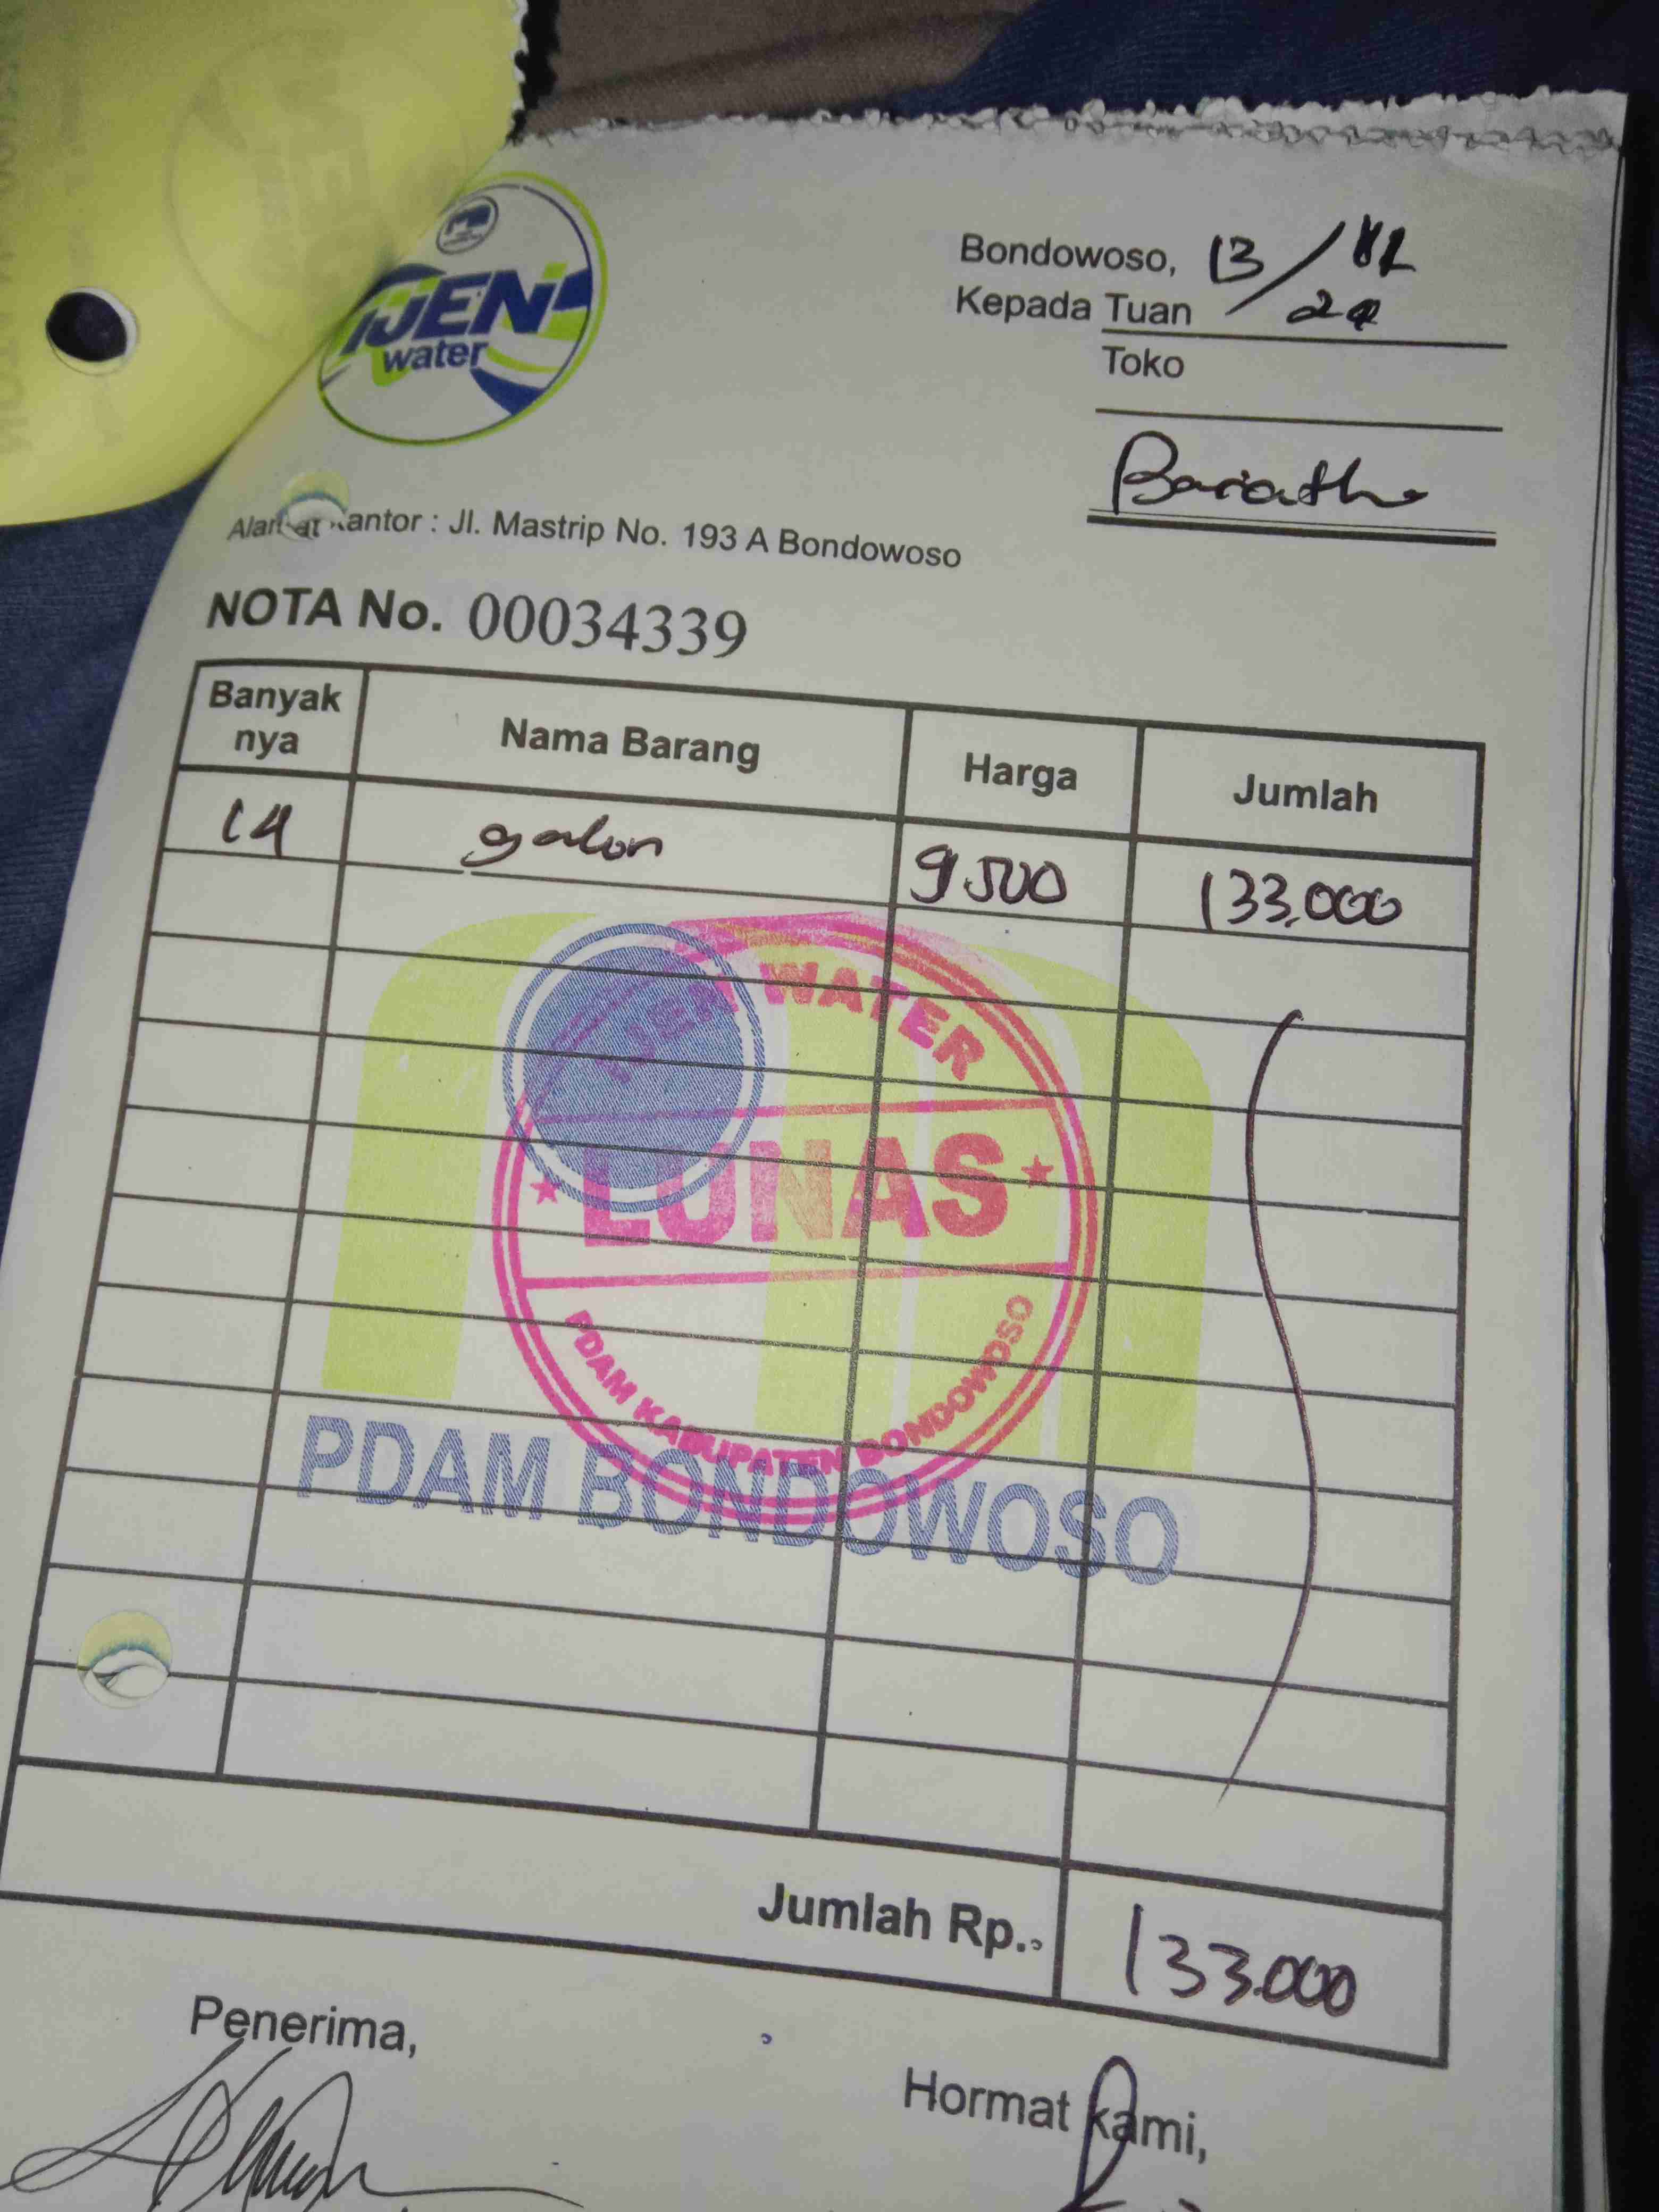 IJEN
water
Bondowoso, 13/
24
Kepada Tuan
Toko
Alamat Kantor : Jl. Mastrip No. 193 A Bondowoso
NOTA No. 00034339
Banyak nya Nama Barang Harga Jumlah
14 galon 9.500 133.000
IJEN WATER
LUNAS
PDAM KABUPATEN BONDOWOSO
PDAM BONDOWOSO
Jumlah Rp.. 133.000
Penerima,
Hormat kami,